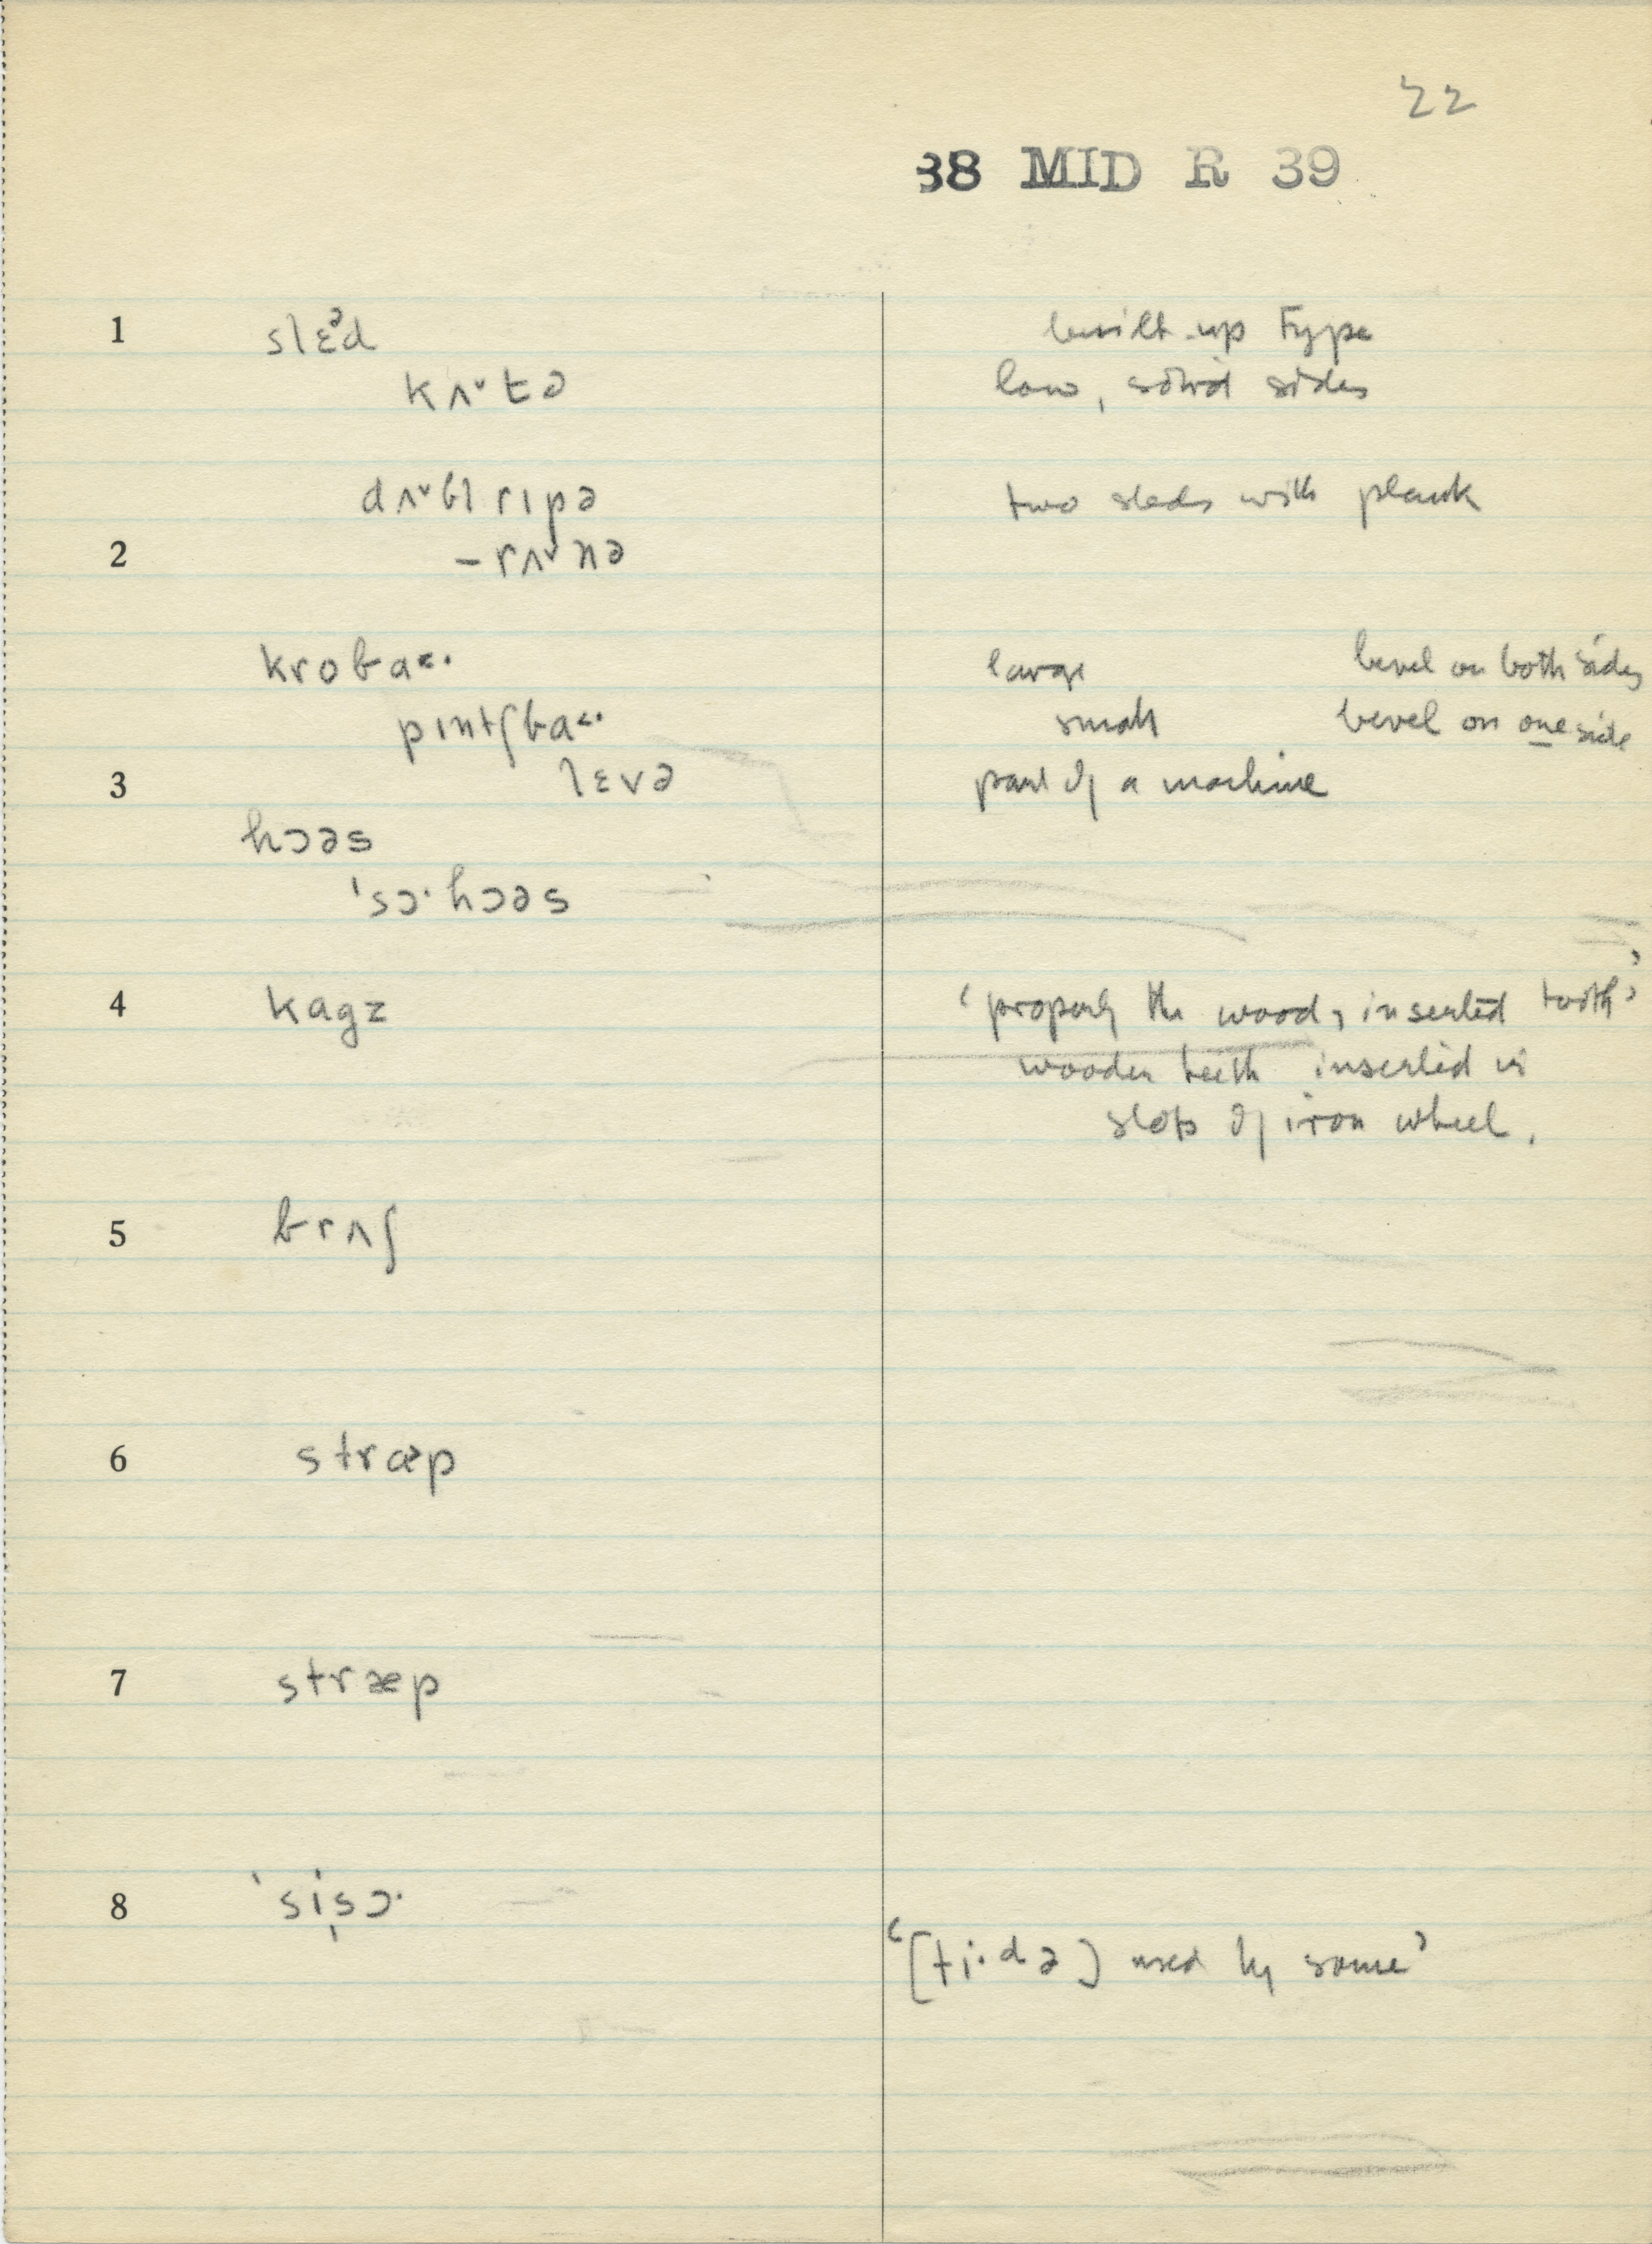 22
38 MID R 39
1 slɛᵊd built-up type
kʌ˅tə low, solid sides
dʌ˅bl rɪpə two sleds with plank
2 –rʌ˅nə
kroba˂· large bevel on both sides
pɪntʃba˂· small bevel on one side
3 lɛvə part of a machine
hɔəs
'sɔ·hɔəs
4 kagz ‘properly the wood, inserted tooth’
wooden teeth inserted in
slots of iron wheel.
5 brʌʃ
6 stræp
7 stræp
8 'si̩sɔ·
‘[ti·də] used by some’